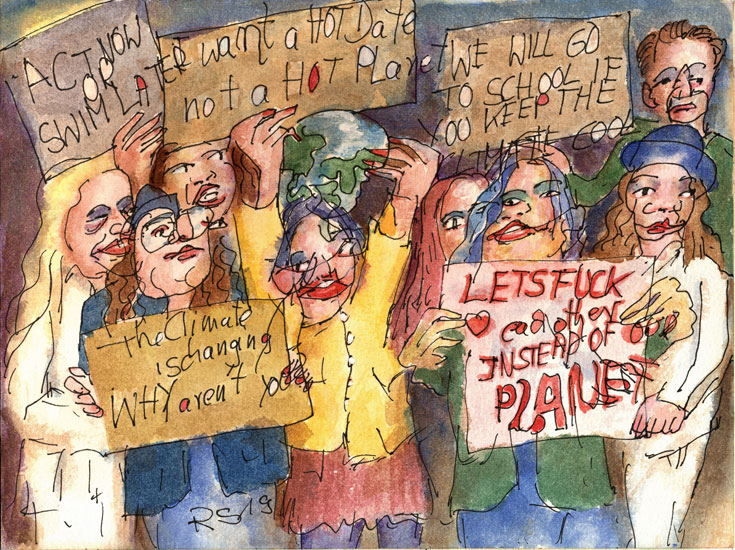 ACT NOW
OR
SWIM LATER
I want a HOT Date
not a HOT Planet
WE WILL GO
TO SCHOOL IF
YOU KEEP THE
COOL
the Climate
is changing
WHY aren't you!
LETS FUCK
each other
INSTEAD OF OUR
PLANET
RS19